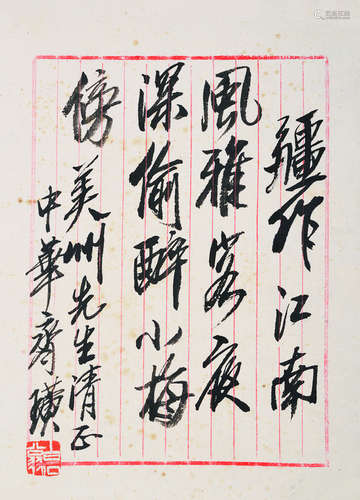 疆作江南
風雅客夜
深偷醉小梅
傍
美州先生清正
中華齊璜